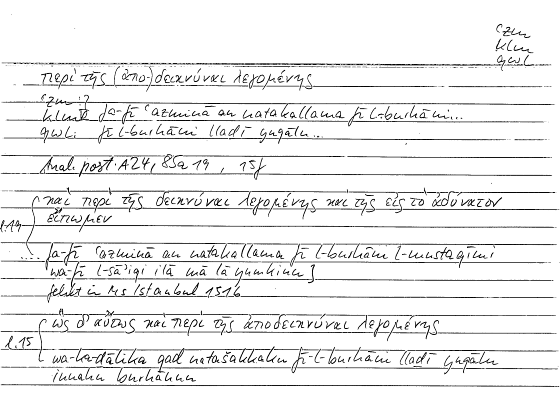 ʿzm
klm
qwl
περὶ τῆς (ἀπο-)δεικνύναι λεγομένης
ʿzm: ?
klm V fa-fī ʿazminā an natakallama fī l-burhāni...
qwl: fī l-burhāni lladī yuqālu...
Anal. post. A 24, 85a 19, 15f
l.19 καὶ περὶ τῆς δεικνύναι λεγομένης καὶ τῆς εἰς τὸ ἀδύνατον
εἴπωμεν
.... fa-fī ʿazminā an natakallama fī l-burhāni l-mustaqīmi
wa-fī l-sāʾiqi ilā mā lā yumkinu]
fehlt in Ms Istanbul 1516
l.15 ὣς δ' αὔτως καὶ περὶ τῆς ἀποδεικνύναι λεγομένης
wa-ka-dālika qad natašakkaku fī-l-burhāni lladī yuqālu
innahu burhānun